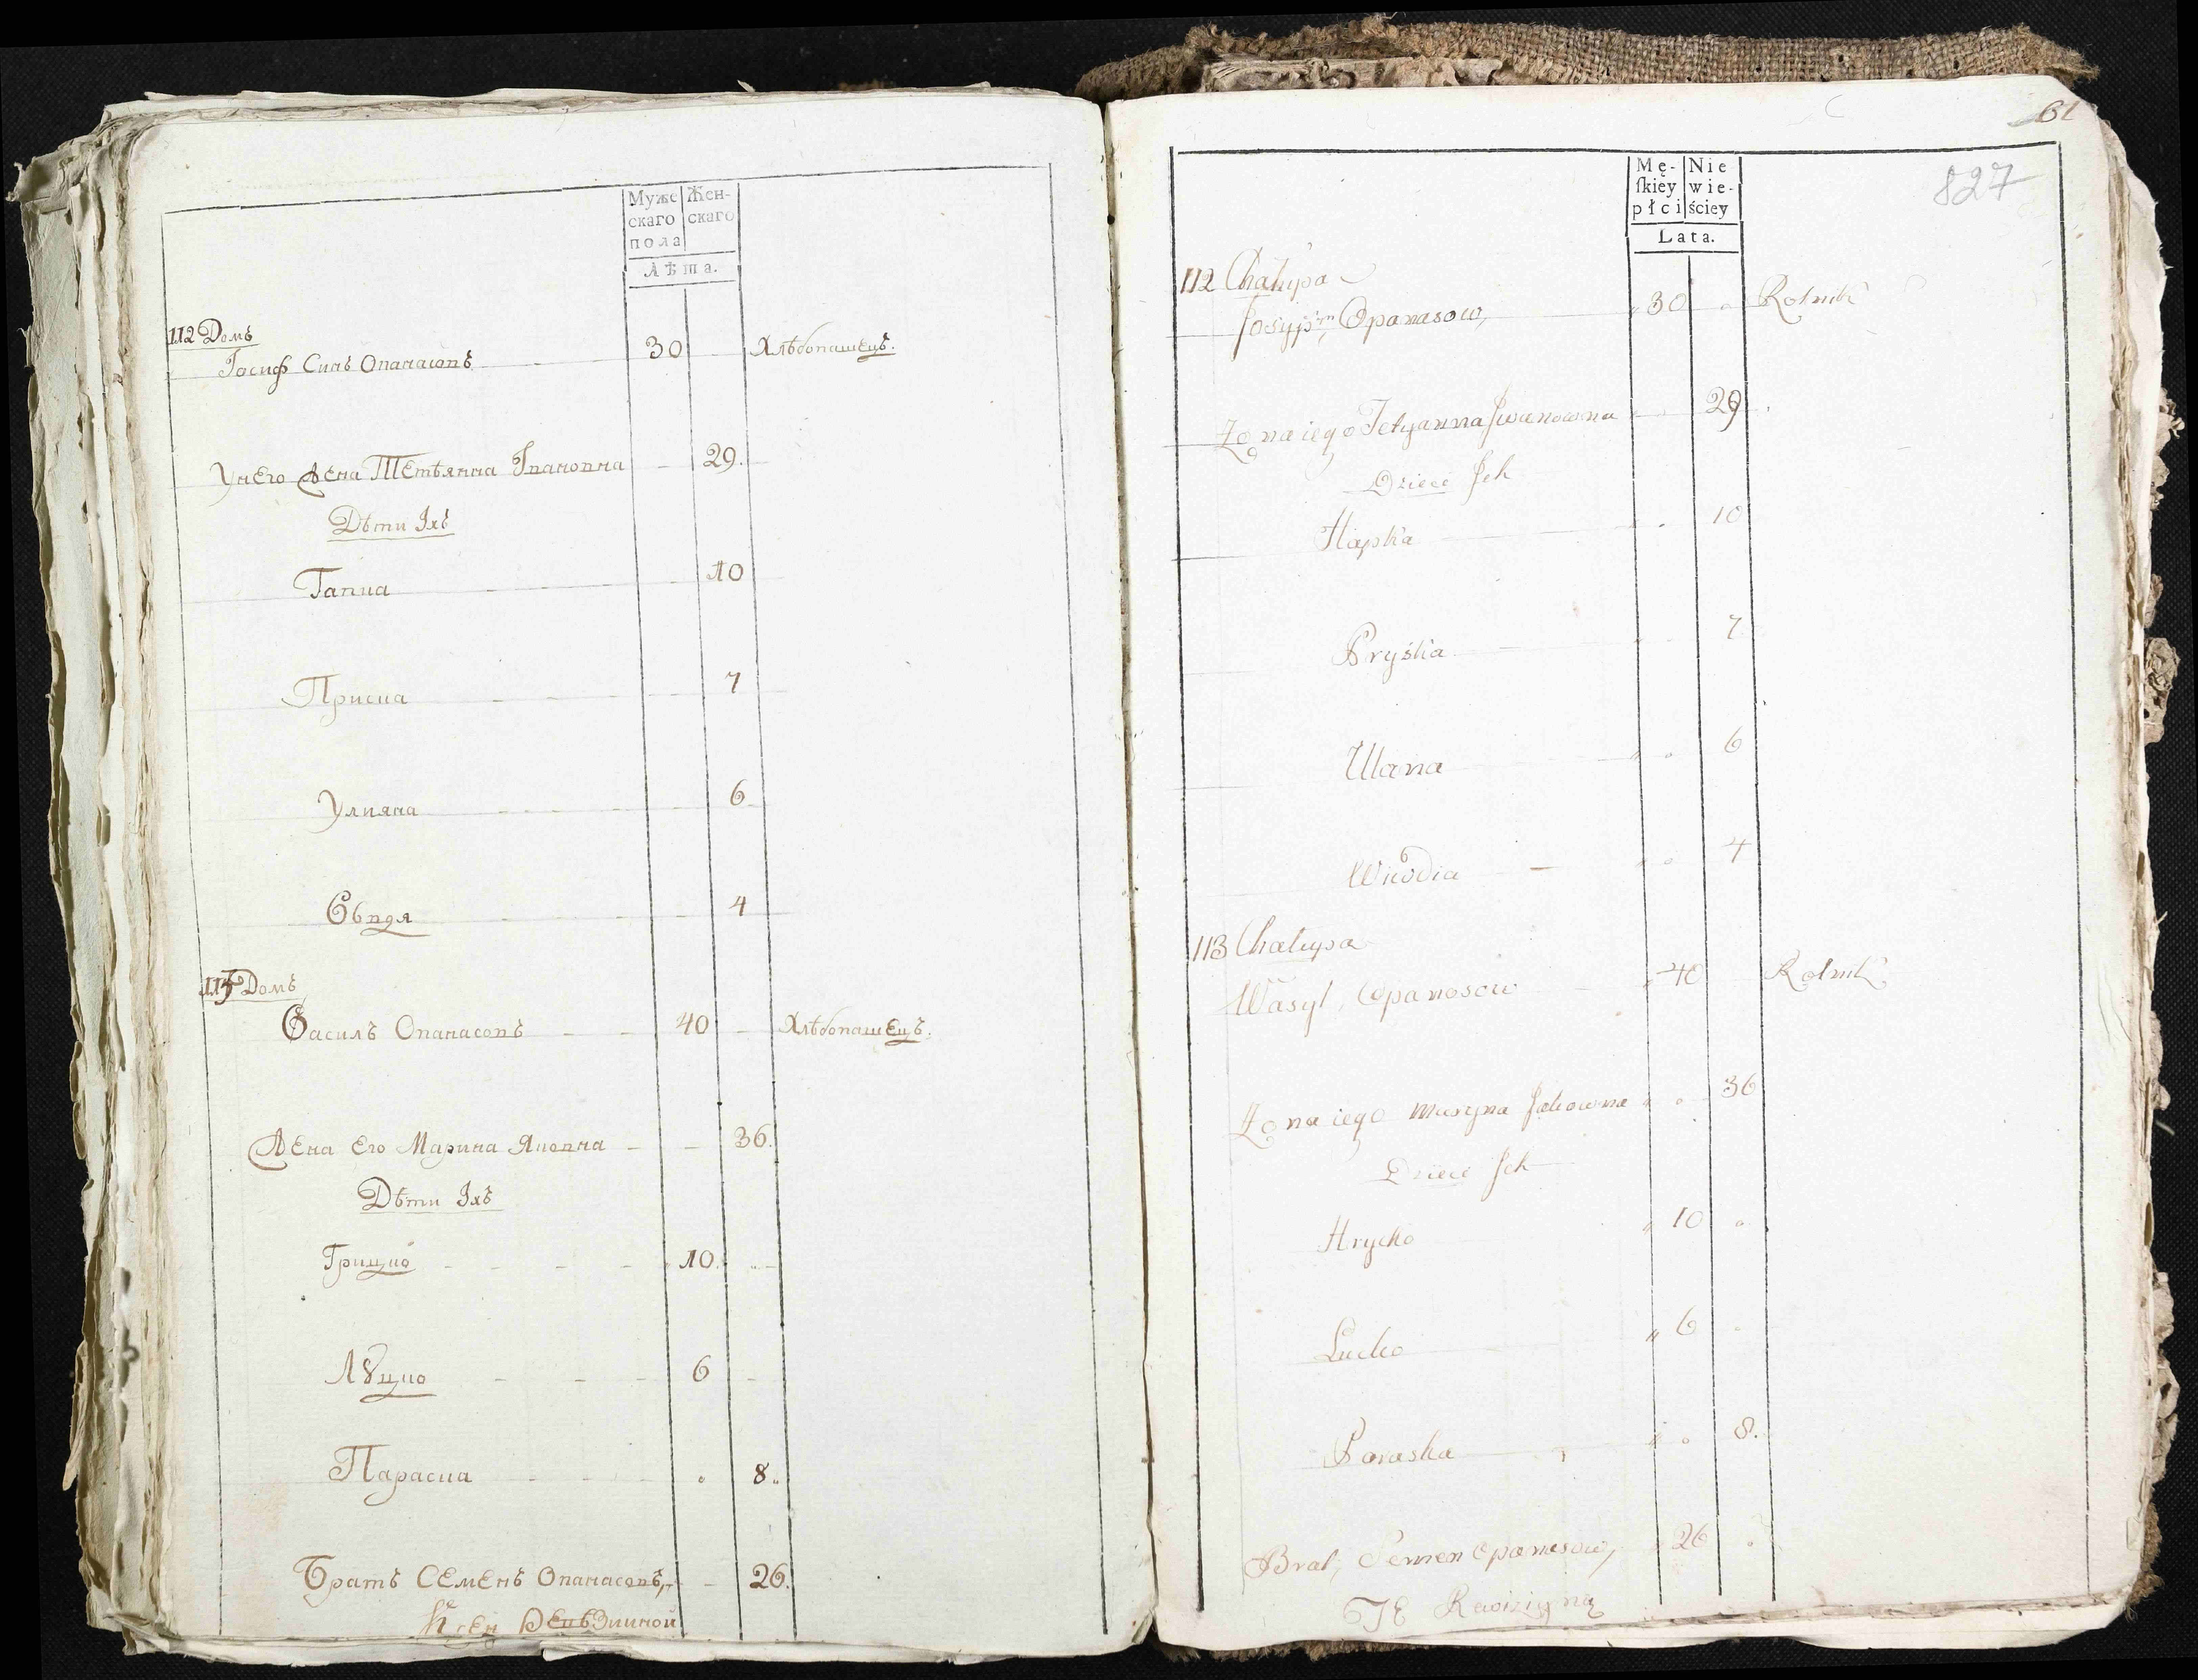 Муже Жен-
скаго скаго
пола
Лѣта.
112 Домъ
Іосиф Синъ Опанасовъ 30 Хлѣбопашецъ.
Унего Жена Тетѣянна Івановна 29.
Дѣти Іхъ
Гапка 10
Приска 7
Улияна 6
Євдя 4
113 Домъ
Василъ Опанасовъ 40 Хлѣбопашецъ.
Жена Его Марина Яковна 36.
Дѣти Іхъ
Грицко 10.
Лȣцко 6
Параска 8.
Братъ Семенъ Опанасовъ, 26.
61
827
Mę- Nie
ſkiey wie-
płci ściey
Lata.
112 Chałupa
Josyp Opanasow, 30 Rolnik
Żona iego Tetyanna Jwanowna 29
Dzieci Jch
Hapka 10
Pryśka 7
Ulana 6
Wiwdia 4
113 Chałupa
Wasyl, Opanasow 40 Rolnik
Żona iego Maryna Jakowna 36
Dzieci Jch
Hrycko 10
Lucko 6
Paraska 8.
Brat, Semen Opanasow, 26